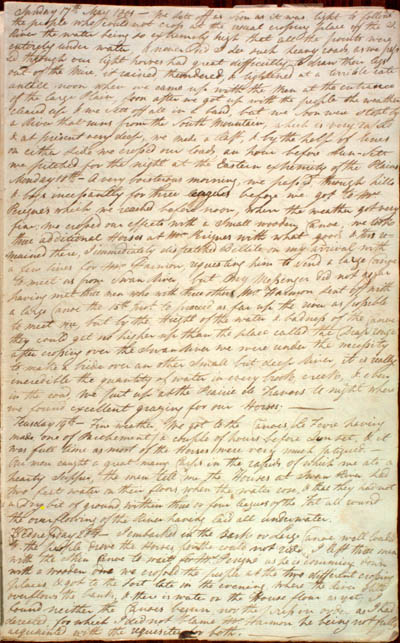 Sunday 17th May 1801 — We sett off as soon as it was light to follow
the people who could not cross at the usual crossing place after the
River the water being so extremely high that all the points were
entirely under water I never did I see such heavy roads as we pass
ed through our light horses had great difficulty to drawn their legs
out of the Mire, it rained, thundered, & lightened at a terrible rate
untill noon when we came up with the Men at the entrance
of the large plain Soon after we got up with the people the weather
cleared up & we sett off all in a band but we soon were stopt by
a River that runs from the South Mountain which is very rapid
& at present very deep, we made a raft & by the help of lines
on either side we crossed our loads, an hour before Sun-set
we pitched for the night at the Eastern extremity of the Plains
Monday 18th A very boisterous morning, we passed through hills
& Bogs incessantly for three leagues before we got to Mr
Peignes which we reached before noon, when the weather got very
fine. We crossed our effects with a Small wooden Canoe, we took
three additional Horses at Mr Peignes with what goods & this re
mained there, I immediately dispatched Belleile on my arrival with
a few lines for Mr Harmon, requesting him to send a large barge
to meet us from Swan River, but they Messenger did not
having met the men who with three others Mr Harmon sent off with
a large canoe the 1st inst to proceed as far up the river as possible
to meet me but by the Height of the water & badness of the canoe
they could get no higher up than the place called
after crossing over the Swan River we were under the necessity
to make a bridge over an other Small but deep River it is really
incredible the quantity of water in every brook, creek, & even
in the road, we put up at the Prairie de Lavoirs to night where
we found excellent grazing for our Horses.
Tuesday 19th — Fine weather. We got to the Canoes, Le Fevre having
made one of Parchement, a couple of hours before Sun set, & it
was full time as most of the Horses were very much fatigued —
the men caught a great many Carps in the rapids of which we ate a
hearty Supper, the men tell me the Houses at Swan River had
two feet water on their floors when the water rose, & that they had not
a dry bit of ground within three or four leagues of the Fort all round
the overflowing of the River having laid all underwater.
Wednesday 20th — I embarked in the bark or large canoe well loaded
& the people drove the Horses, for the could not ride, I left three men
with the Skin Canoe to wait for Mr Peignes as he is coming down
with a wooden one we crossed the people at the two different crossing
places & got to the Fort late in the evening, when the River
overflows the banks, & there is water on the House floor as yet, I
found neither the Canoes begun nor the as I had
directed, for which I did not blame Mr Harmon he being not fully
acquainted with the requisites for both.